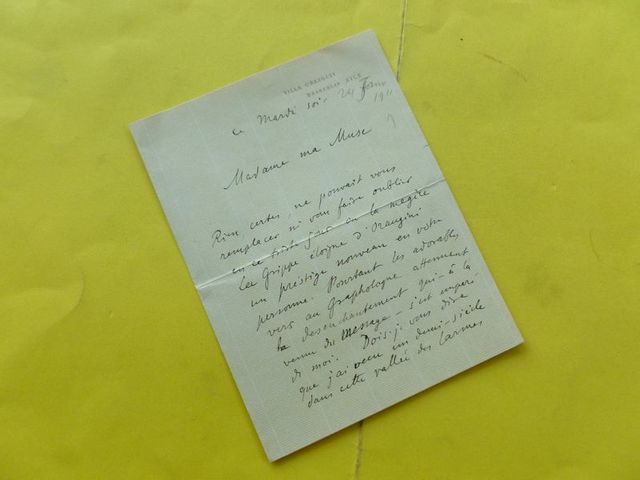 VILLA ORANGINI
NICE
ce Mardi soir 24 1911
Madame ma Muse
Rien certes, ne pouvait vous
remplacer ni vous faire oublier
en ce triste jour où la
Grippe éloigne d'Orangini
un prestige nouveau en votre
personne. Pourtant les adorables
vers au Graphologue attenuent
le desenchantement qui - à la
venue du Message - s'est emparé
de moi. Dois-je vous dire
que j'ai vécu un demi-siècle
dans cette vallée des Larmes